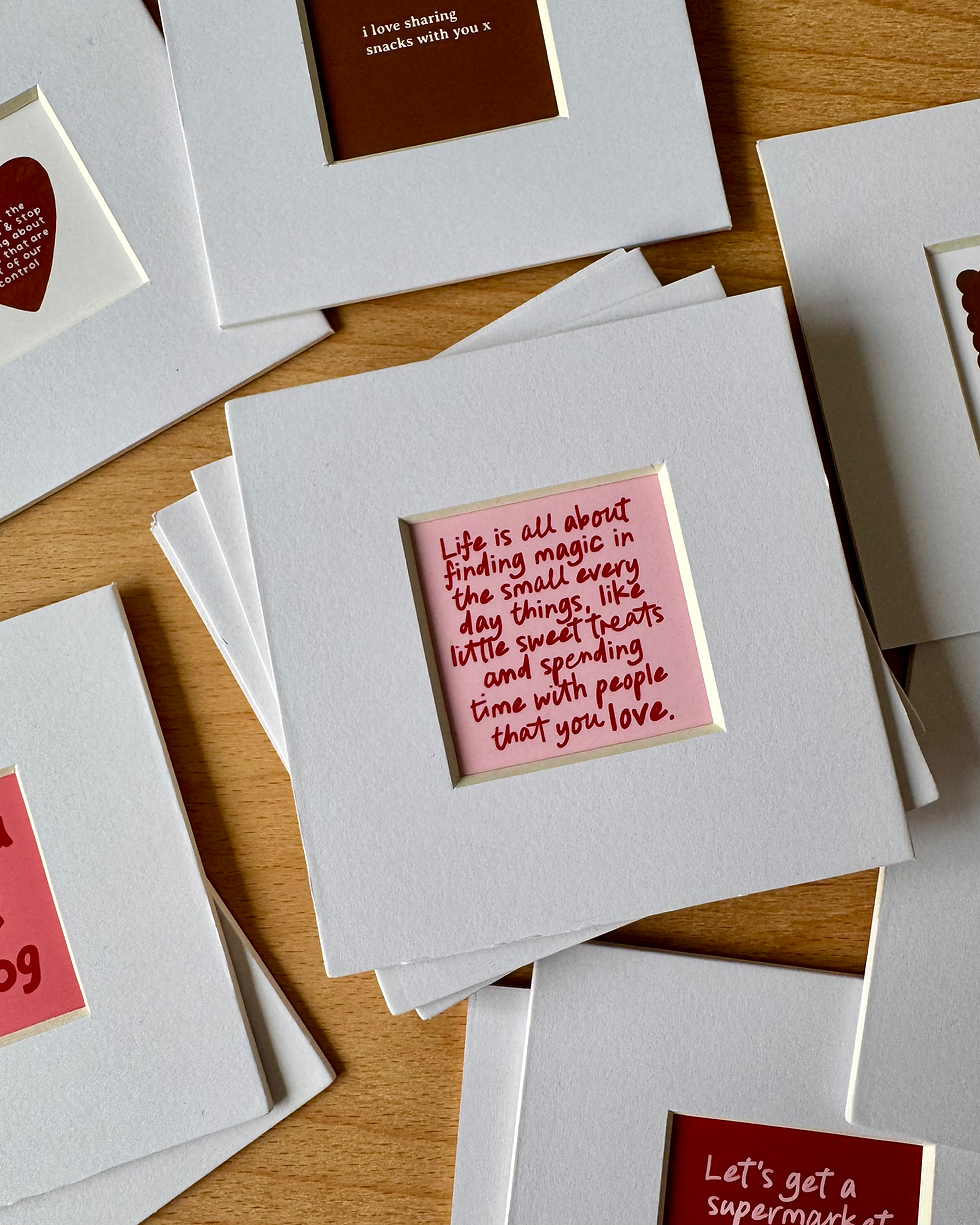 i love sharing
snacks with you x
the
& stop
about
that are
of our
control
Life is all about
finding magic in
the small every
day things, like
little sweet treats
and spending
time with people
that you love.
Let's get a
supermarket